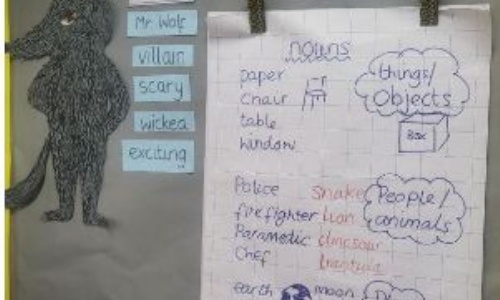 Mr Wolf
villain
scary
wicked
exciting
nouns
paper
chair
table
window
things/
Objects
Box
Police
firefighter
Paramedic
Chef
snake
Lion
dinosaur
People/
animals
earth
moon